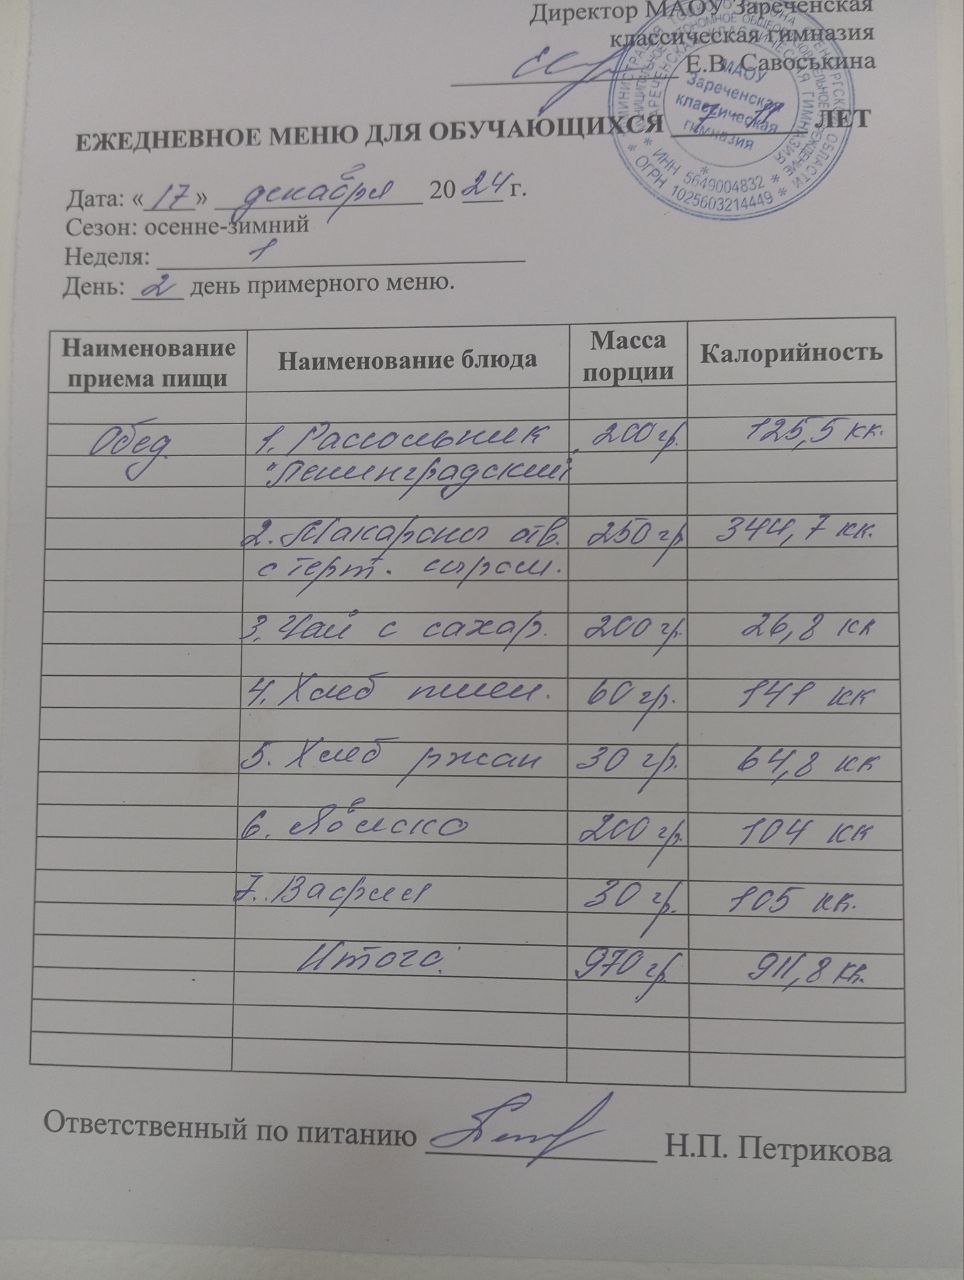 Директор МАОУ Зареченская
классическая гимназия
Е.В. Савоськина
МАОУ
Зареченская
классическая
гимназия
* ИНН 5649004832 *
* ОГРН 1025603214449 *
ЕЖЕДНЕВНОЕ МЕНЮ ДЛЯ ОБУЧАЮЩИХСЯ 7-11 ЛЕТ
Дата: «17» декабря 2024 г.
Сезон: осенне-зимний
Неделя: 1
День: 2 день примерного меню.
Наименование приема пищи Наименование блюда Масса порции Калорийность
Обед 1. Рассольник 200 гр. 125,5 кк.
"Ленинградский"
2. Макароны отв. 250 гр 344,7 кк.
с терт. сыром.
3. Чай с сахар. 200 гр. 26,8 кк
4. Хлеб пшен. 60 гр. 141 кк
5. Хлеб ржан 30 гр. 64,8 кк
6. Яблоко 200 гр. 104 кк
7. Вафли 30 гр. 105 кк.
Итого: 970 гр. 911,8 кк.
Ответственный по питанию Н.П. Петрикова